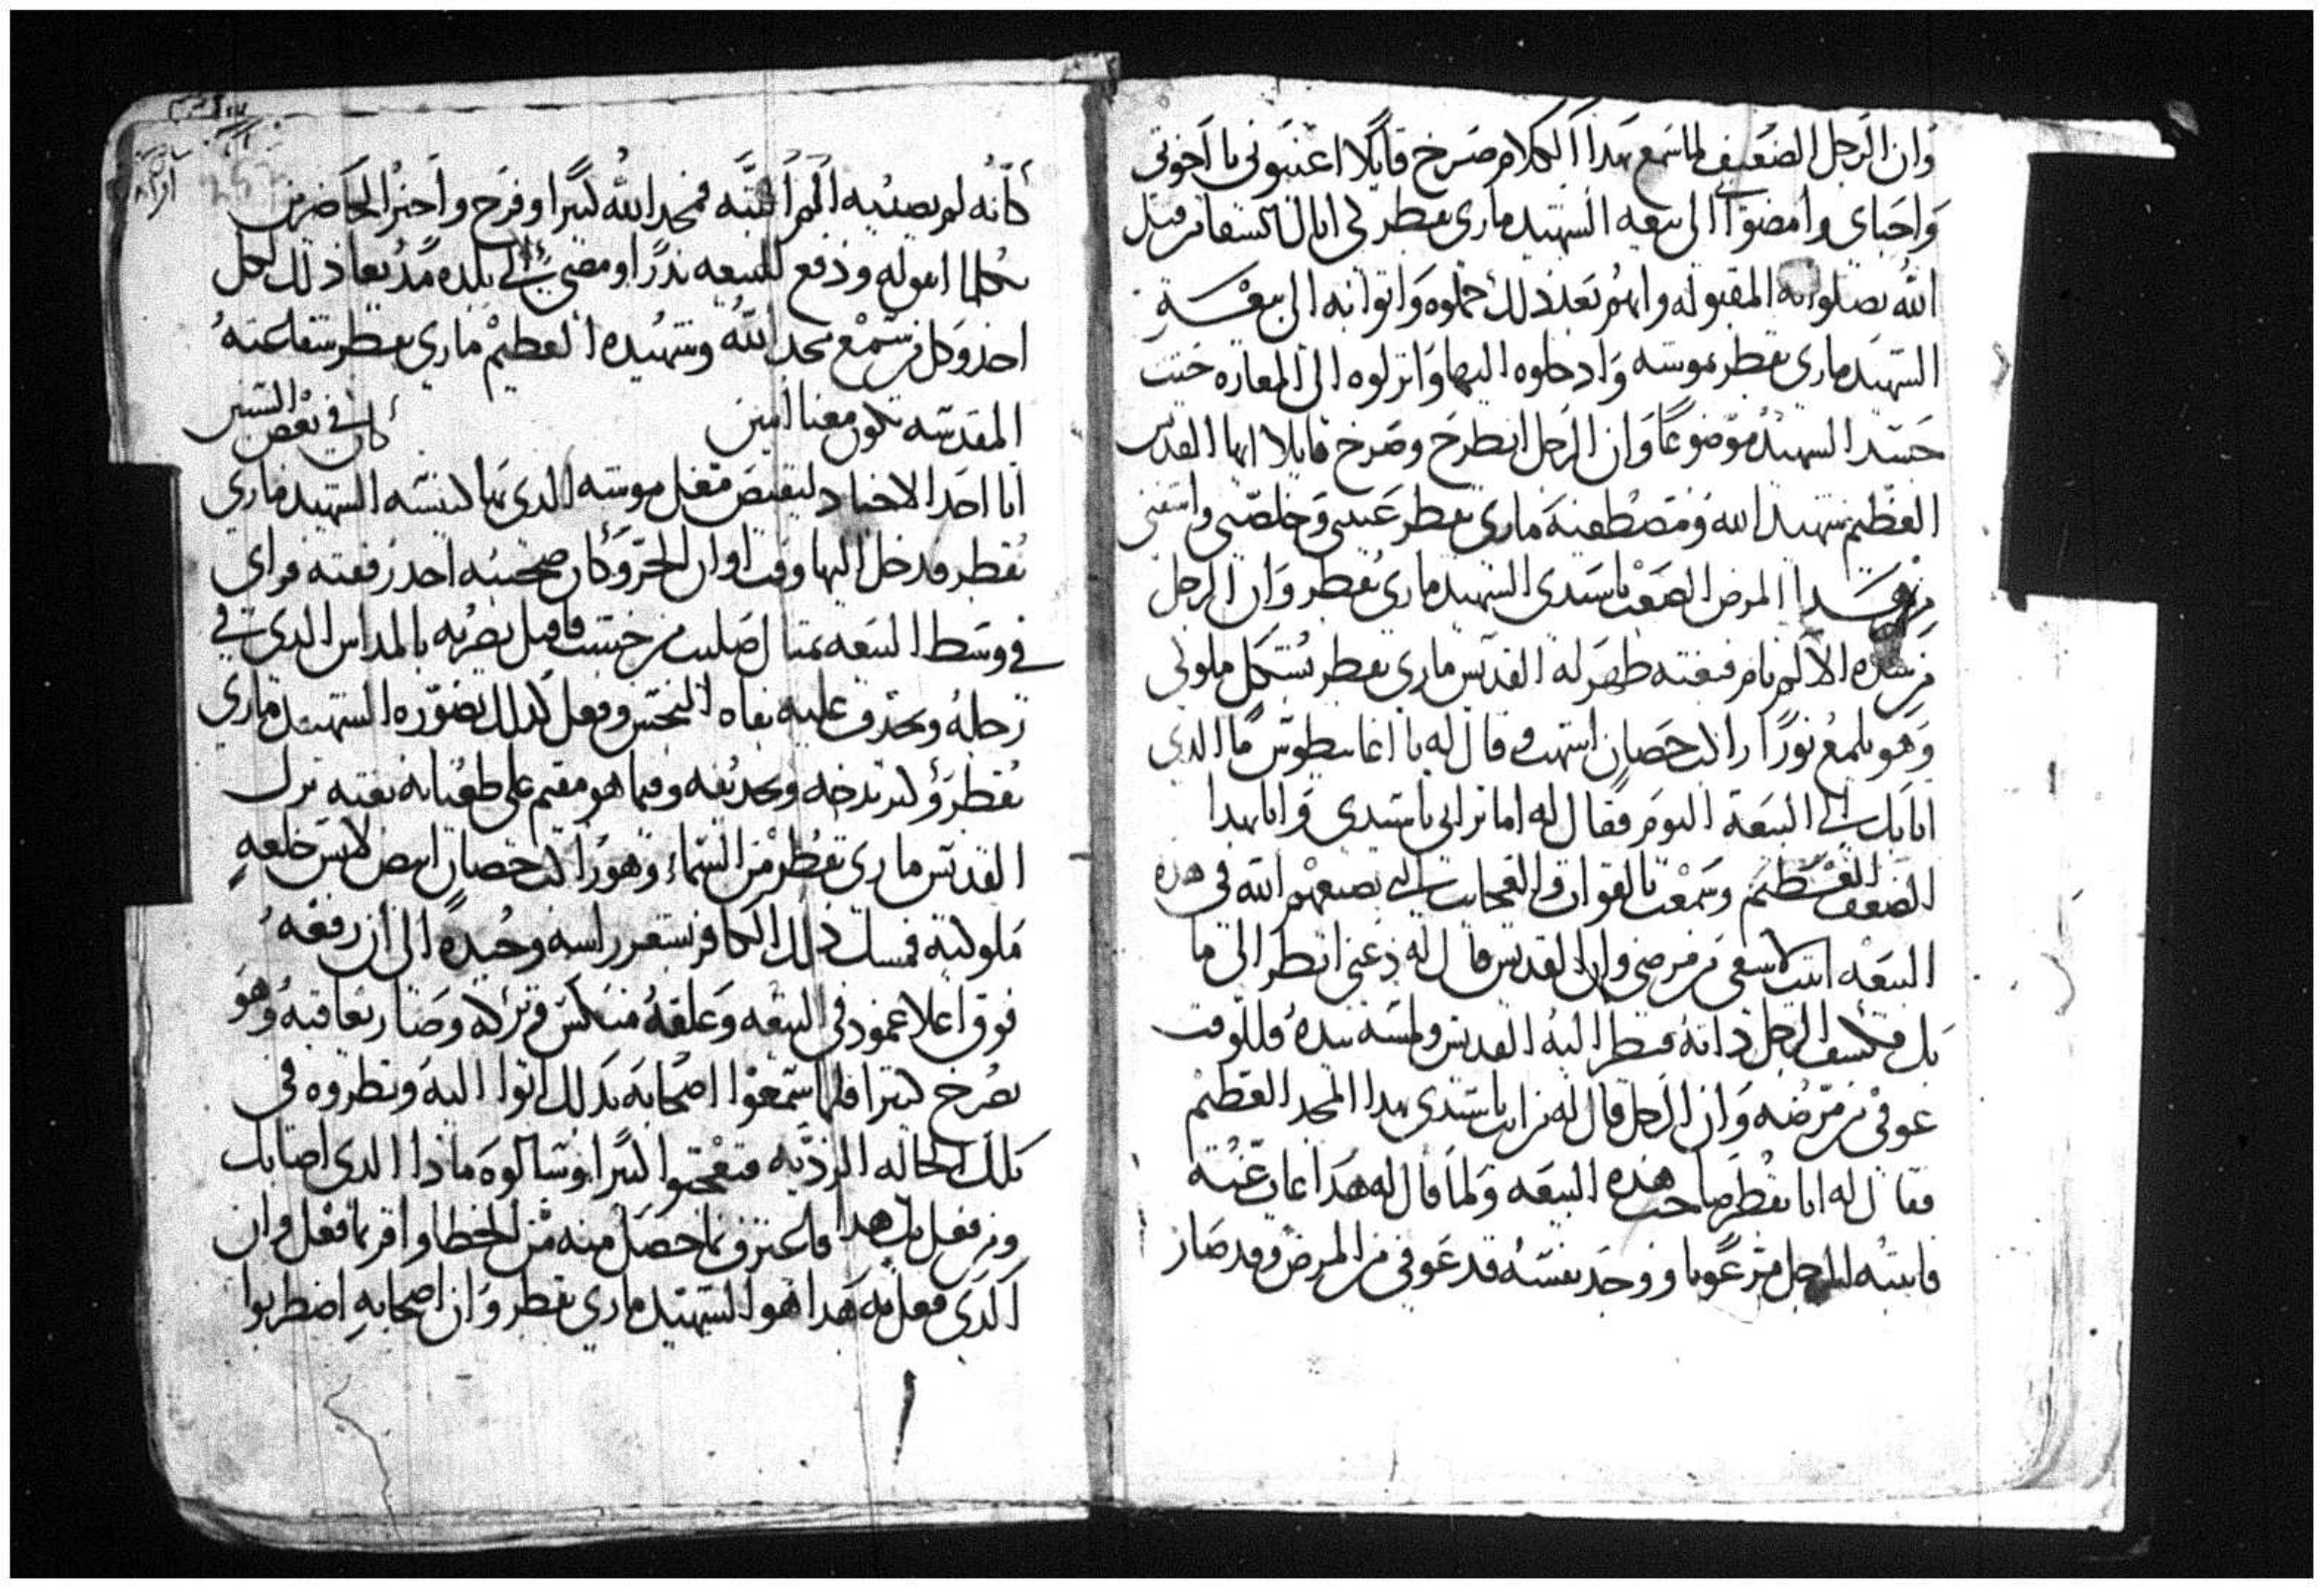 وان الرجل الضعيف لما سمع هدا الكلام صرخ قايلا اعينوني يا اخوتي
واحباي وامضوا بي الى بيعه الشهيد ماري بقطر لي انال الشفا من قبل
الله بصلواته المقبوله وانهم بعد ذلك حملوه واتوا به الى بيعة
الشهيد ماري بقطر بموشه وادخلوه اليها وانزلوه الى المغاره حيث
جسد الشهيد موضوعا وان الرجل انطرح وصرخ قايلا ايها القديس
العظيم شهيد الله ومصطفيه ماري بقطر عيني وخلصني واشفني
من هدا المرض الصعب يا سيدي الشهيد ماري بقطر وان الرجل
من شده الالم نام فبغته ظهر له القديس ماري بقطر بشكل ملوكي
وهو يلمع نورا راكب حصان اشهب وقال له يا اغابيطوس ما الذي
اتا بك الى البيعة اليوم فقال له اما تراني يا سيدي وانا بهدا
الضعف العظيم وسمعت بالقوات والعجايب التي يصنعهم الله في هذه
البيعه اتيت لاشفى من مرضي وان القديس قال له دعني انظر الى ما
بك فكشف الرجل ذاته فنظر اليه القديس ولمسه بيده وللوقت
عوفي من مرضه وان الرجل قال له من انت يا سيدي بهدا المجد العظيم
فقال له انا بقطر صاحب هذه البيعه ولما قال له هدا غاب عنه
فانتبه الرجل مرعوبا ووجد نفسه قد عوفي من المرض وقد صار
كانه لم يصيبه الم البته فمجد الله كثيرا وفرح واخبر الحاضرين
بكلما اصابه ودفع للبيعه ندرا ومضى الى بلده مديعا ذلك لكل
احد وكل من سمع مجد الله وشهيده العظيم ماري بقطر شفاعته
المقدسه تكون معنا امين كان في بعض السنين
اتا احد الاجناد ليقبض مغل موشه الذي بها كنيسه الشهيد ماري
بقطر فدخل اليها وقت اوان الحر وكان صحبته احد رفقته فراى
في وسط البيعه تمثال صليب من خشب فاقبل يضربه بالمداس الدي في
رجله ويجدف عليه بفاه النجس وفعل كذلك بصوره الشهيد ماري
بقطر وكثر تدخه وتجديفه وفيما هو مقيم على طغيانه بغته نزل
القديس ماري بقطر من السماء وهو راكب حصان ابيض لابس خلعه
ملوكيه فمسك ذلك الكافر بشعر راسه وجبده الى ان رفعه
فوق اعلا عمود في البيعه وعلقه منكس وتركه وصار يعاقبه وهو
يصرخ كثيرا فلما سمعوا اصحابه بذلك اتوا اليه ونظروه في
تلك الحاله الرديه فتعجبوا كثيرا وسالوه ماذا الدي اصابك
ومن فعل بك هدا فاعترف بما حصل منه من الخطا واقر بما فعل وان
الذي فعل به هدا هو الشهيد ماري بقطر وان اصحابه اضطربوا